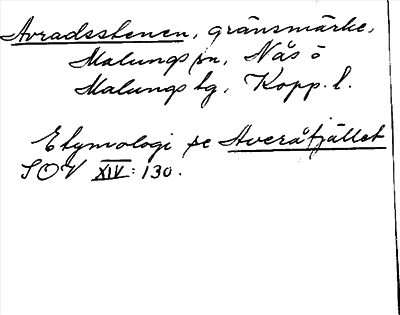 Avradsstenen, gränsmärke,
Malungs sn, Nås ö
Malungs tg, Kopp. l.
Etymologi se Averåfjället
SOV XIV: 130.